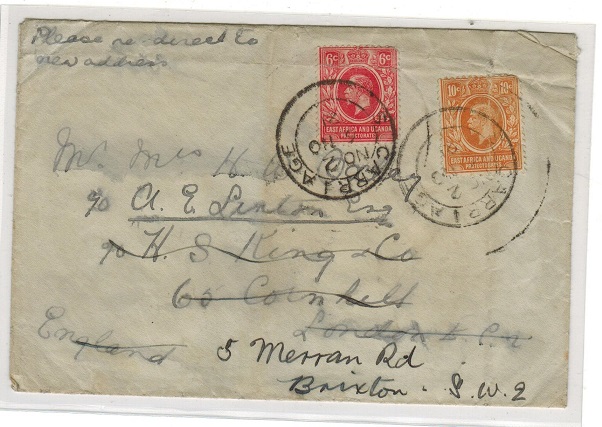 Please re-direct to
new address
6c 6c
EAST AFRICA AND UGANDA
PROTECTORATES
10c 10c
EAST AFRICA AND UGANDA
PROTECTORATES
CARRIAGE
NO
20
CARRIAGE
20
Mrs H.
c/o A. E. Linton Esq
c/o H. S. King & Co
65 Cornhill
London E.C.
England
5 Merran Rd
Brixton. S.W.2